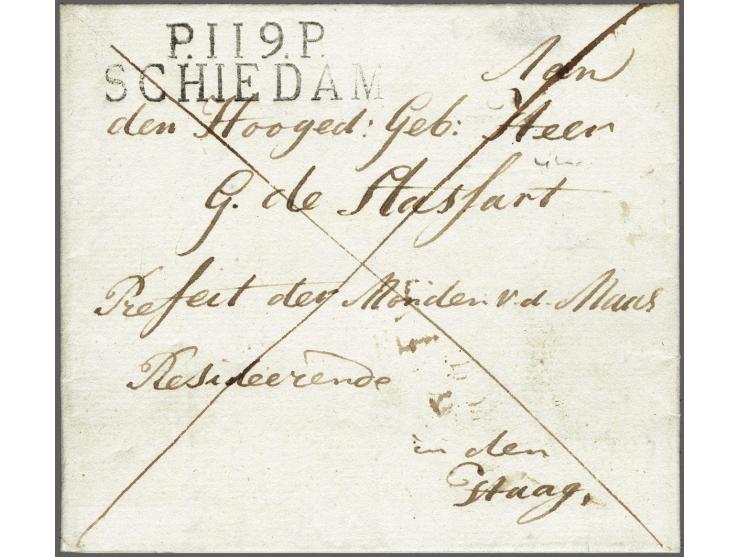 P.119.P.
SCHIEDAM
Aan
den Hooged: Geb: Heer
G. de Stassart
Prefect der Monden v. d. Maas
Resideerende
in den
Haag,